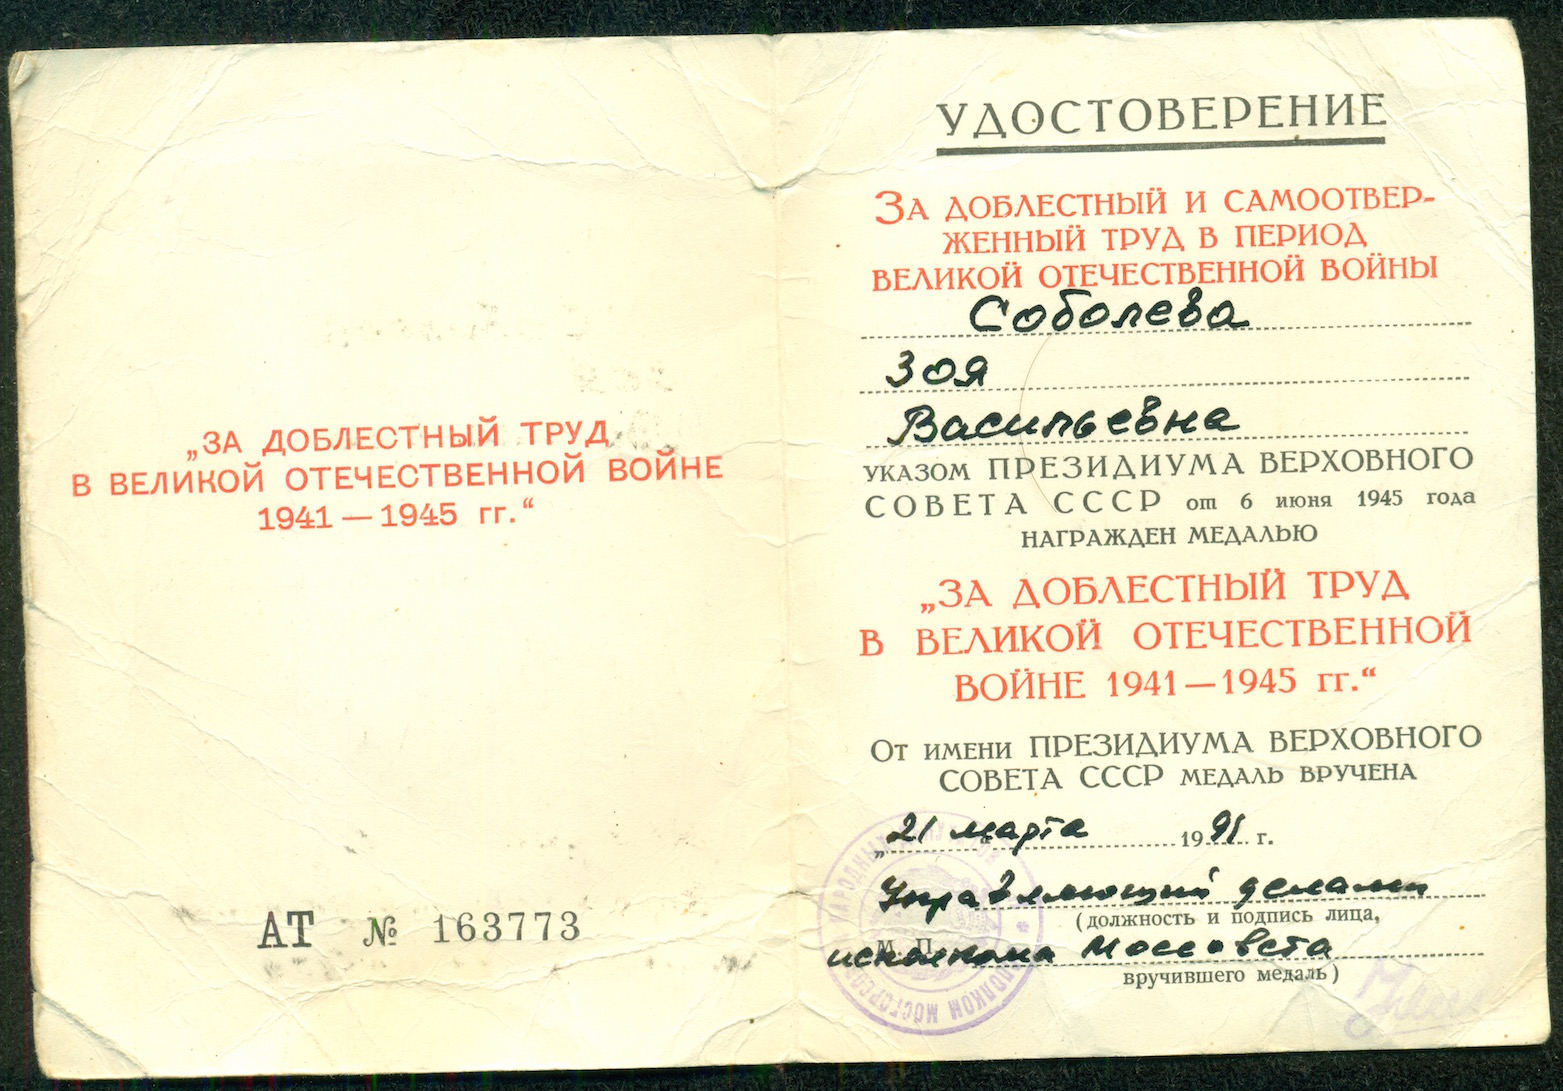 „ЗА ДОБЛЕСТНЫЙ ТРУД
В ВЕЛИКОЙ ОТЕЧЕСТВЕННОЙ ВОЙНЕ
1941—1945 гг.“
АТ № 163773
УДОСТОВЕРЕНИЕ
ЗА ДОБЛЕСТНЫЙ И САМООТВЕР-
ЖЕННЫЙ ТРУД В ПЕРИОД
ВЕЛИКОЙ ОТЕЧЕСТВЕННОЙ ВОЙНЫ
Соболева
Зоя
Васильевна
УКАЗОМ ПРЕЗИДИУМА ВЕРХОВНОГО
СОВЕТА СССР от 6 июня 1945 года
НАГРАЖДЕН МЕДАЛЬЮ
„ЗА ДОБЛЕСТНЫЙ ТРУД
В ВЕЛИКОЙ ОТЕЧЕСТВЕННОЙ
ВОЙНЕ 1941—1945 гг.“
ОТ ИМЕНИ ПРЕЗИДИУМА ВЕРХОВНОГО
СОВЕТА СССР МЕДАЛЬ ВРУЧЕНА
„21 марта 1991 г.
Управляющий делами
(должность и подпись лица,
М. П.
исполкома Моссовета
вручившего медаль)